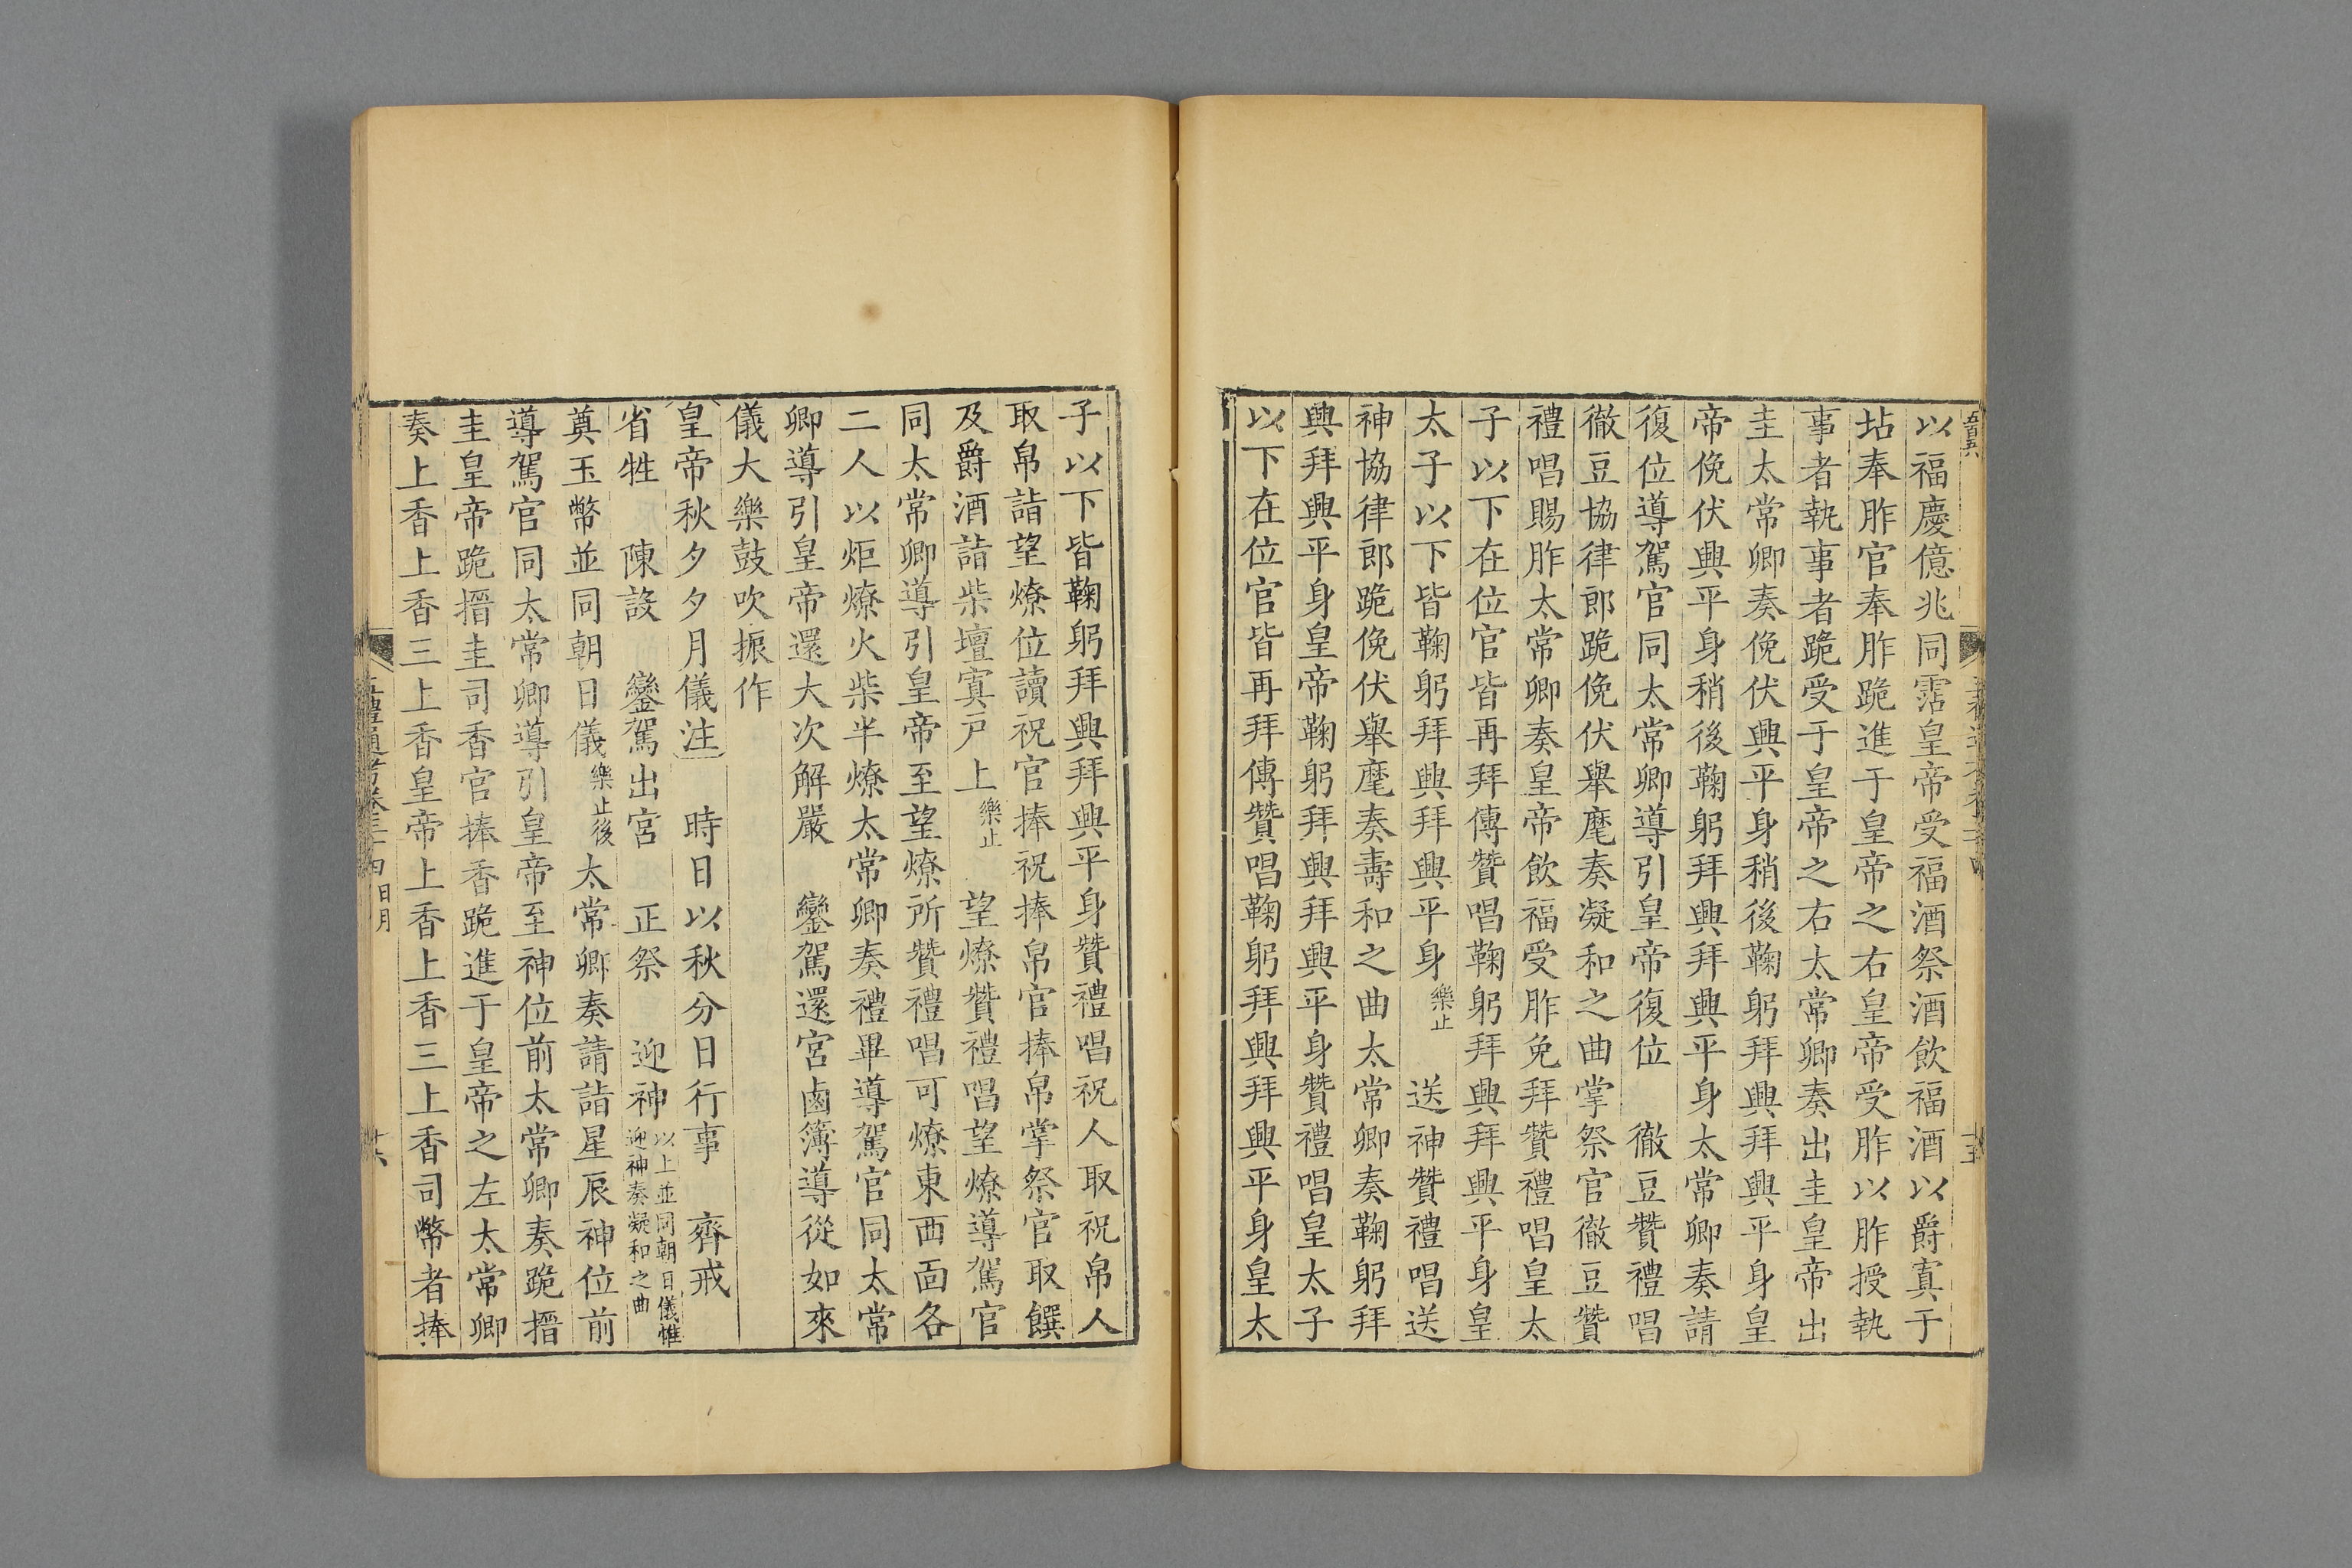 以福慶億兆同霑皇帝受福酒祭酒飲福酒以爵寘于
坫奉胙官奉胙跪進于皇帝之右皇帝受胙以胙授執
事者執事者跪受于皇帝之右太常卿奏出圭皇帝出
圭太常卿奏俛伏興平身稍後鞠躬拜興拜興平身皇
帝俛伏興平身稍後鞠躬拜興拜興平身太常卿奏請
復位導駕官同太常卿導引皇帝復位　徹豆贊禮唱
徹豆協律郎跪俛伏舉麾奏凝和之曲掌祭官徹豆贊
禮唱賜胙太常卿奏皇帝飲福受胙免拜贊禮唱皇太
子以下在位官皆再拜傳贊唱鞠躬拜興拜興平身皇
太子以下皆鞠躬拜興拜興平身樂止　送神贊禮唱送
神協律郎跪俛伏舉麾奏壽和之曲太常卿奏鞠躬拜
興拜興平身皇帝鞠躬拜興拜興平身贊禮唱皇太子
以下在位官皆再拜傳贊唱鞠躬拜興拜興平身皇太
子以下皆鞠躬拜興拜興平身贊禮唱祝人取祝帛人
取帛詣望燎位讀祝官捧祝捧帛官捧帛掌祭官取饌
及爵酒詣柴壇寘戸上樂止　望燎贊禮唱望燎導駕官
同太常卿導引皇帝至望燎所贊禮唱可燎東西面各
二人以炬燎火柴半燎太常卿奏禮畢導駕官同太常
卿導引皇帝還大次解嚴　鑾駕還宮鹵簿導從如來
儀大樂鼓吹振作
皇帝秋夕夕月儀注　時日以秋分日行事　齊戒
省牲　陳設　鑾駕出宮　正祭　迎神以上並同朝日儀惟迎神奏凝和之曲
奠玉幣並同朝日儀樂止後太常卿奏請詣星辰神位前
導駕官同太常卿導引皇帝至神位前太常卿奏跪搢
圭皇帝跪搢圭司香官捧香跪進于皇帝之左太常卿
奏上香上香三上香皇帝上香上香三上香司幣者捧
五禮通考卷三十四　日月　十六